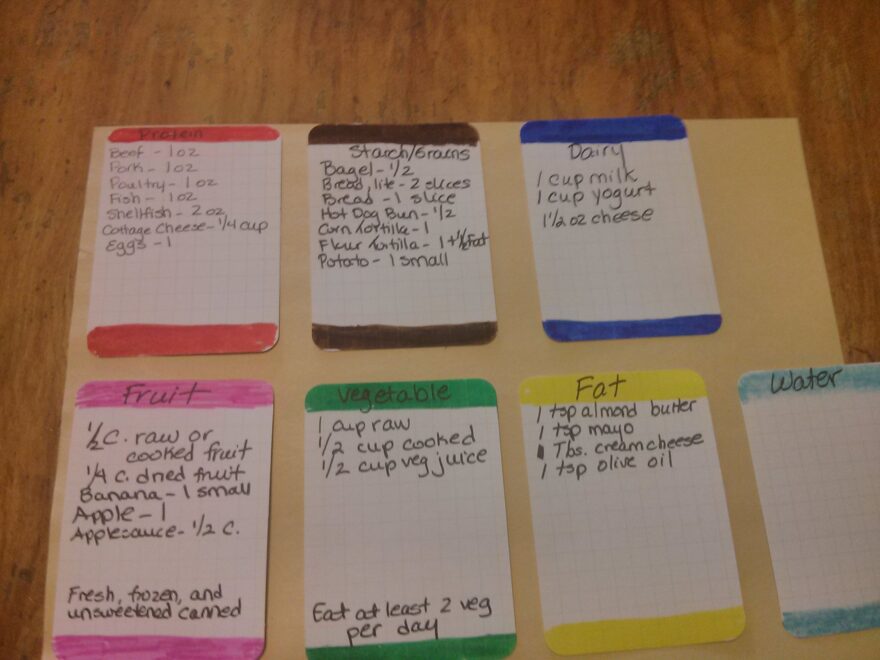 Protein
Beef - 1 oz
Pork - 1 oz
Poultry - 1 oz
Fish - 1 oz
Shellfish - 2 oz
Cottage Cheese - 1/4 cup
Eggs - 1
Starch/Grains
Bagel - 1/2
Bread, lite - 2 slices
Bread - 1 slice
Hot Dog Bun - 1/2
Corn tortilla - 1
Flour tortilla - 1 + 1/2 Fat
Potato - 1 small
Dairy
1 cup milk
1 cup yogurt
1 1/2 oz cheese
Fruit
1/2 C. raw or
cooked fruit
1/4 c. dried fruit
Banana - 1 small
Apple - 1
Applesauce - 1/2 C.
Fresh, frozen, and
unsweetened canned
Vegetable
1 cup raw
1/2 cup cooked
1/2 cup veg juice
Eat at least 2 veg
per day
Fat
1 tsp almond butter
1 tsp mayo
1 Tbs. cream cheese
1 tsp olive oil
Water